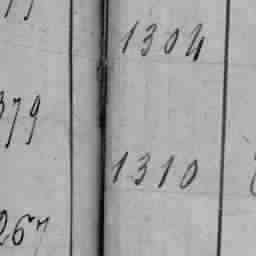 1304
379
1310
267